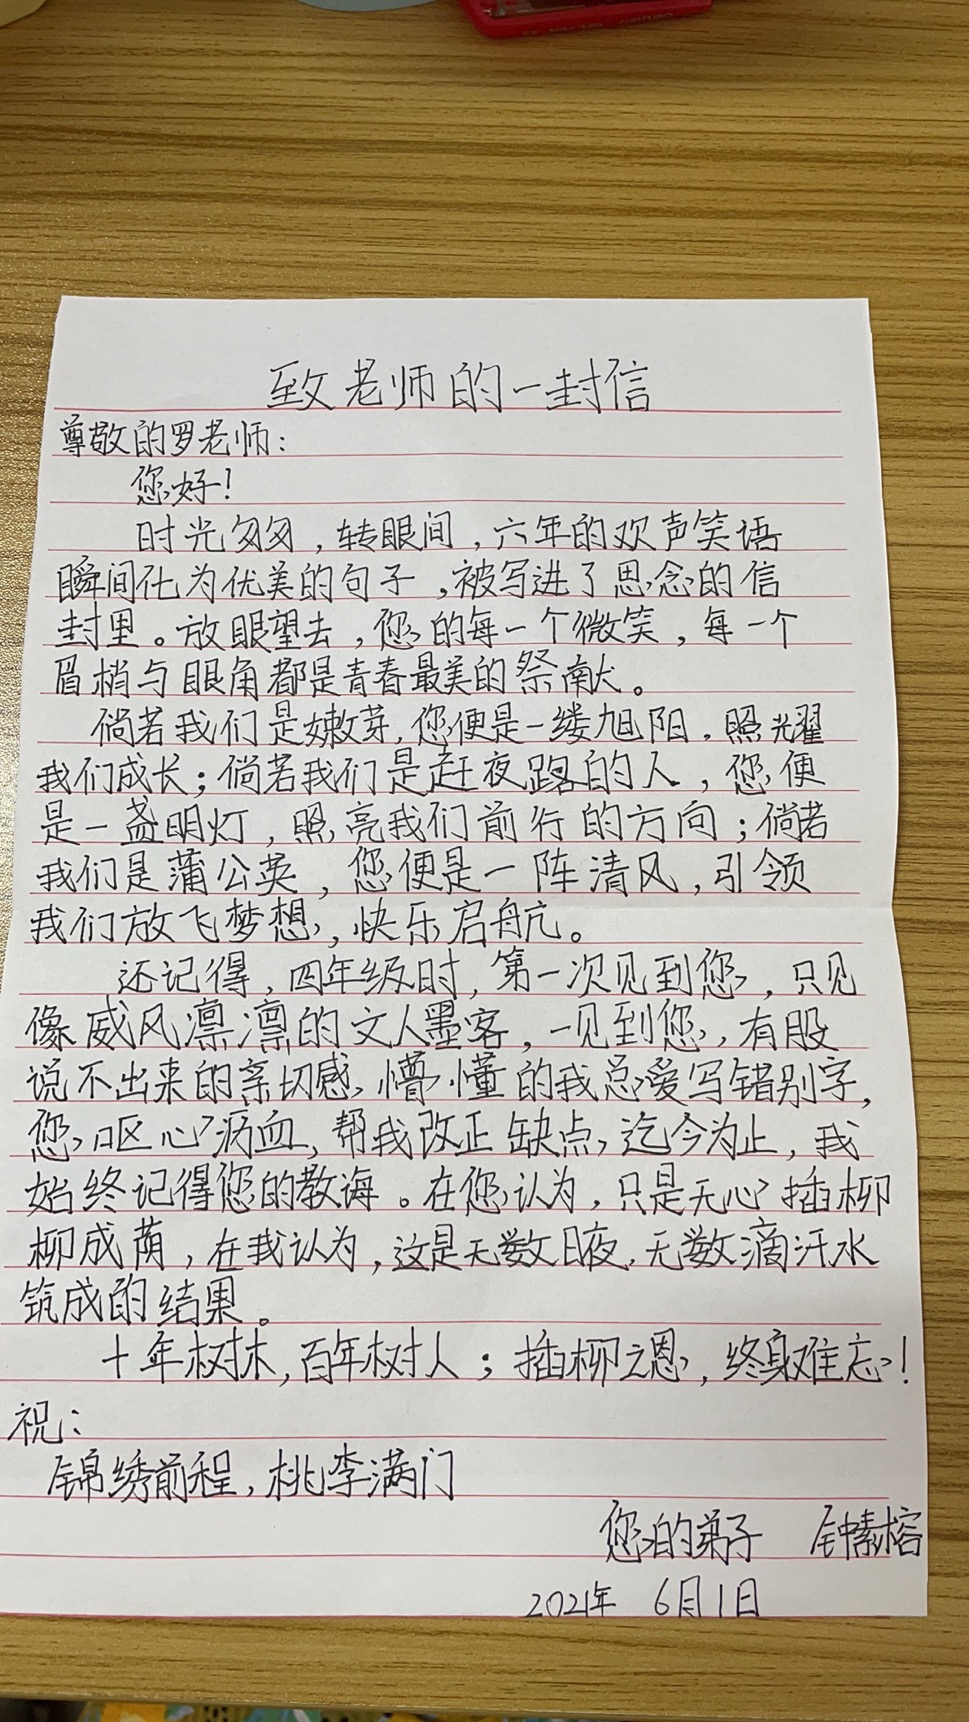 致老师的一封信
尊敬的罗老师：
您好！
时光匆匆，转眼间，六年的欢声笑语
瞬间化为优美的句子，被写进了思念的信
封里。放眼望去，您的每一个微笑，每一个
眉梢与眼角都是青春最美的祭献。
倘若我们是嫩芽，您便是一缕旭阳，照耀
我们成长；倘若我们是赶夜路的人，您便
是一盏明灯，照亮我们前行的方向；倘若
我们是蒲公英，您便是一阵清风，引领
我们放飞梦想，快乐启航。
还记得，四年级时，第一次见到您，只见
像威风凛凛的文人墨客，一见到您，有股
说不出来的亲切感，懵懂的我总爱写错别字，
您呕心沥血，帮我改正缺点，迄今为止，我
始终记得您的教诲。在您认为，只是无心插柳
柳成荫，在我认为，这是无数日夜，无数滴汗水
筑成的结果。
十年树木，百年树人；插柳之恩，终身难忘！
祝：
锦绣前程，桃李满门
您的弟子 钟素榕
2021年 6月1日